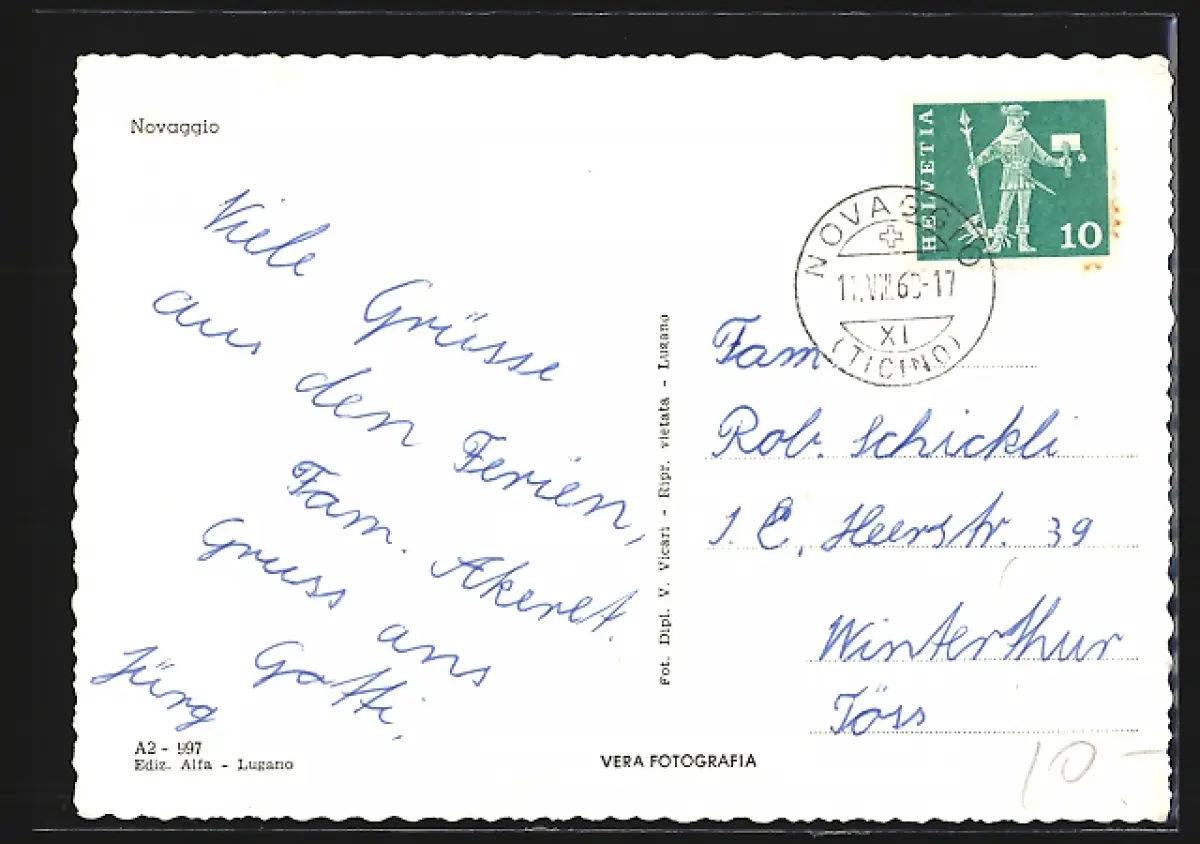 Novaggio
Viele Grüsse
aus den Ferien,
Fam. Akeret.
Gruss ans
Gotti,
Jürg
A2 - 997
Ediz. Alfa - Lugano
VERA FOTOGRAFIA
Fot. Dipl. V. Vicari - Ripr. vietata - Lugano
HELVETIA
10
NOVAGGIO
XI
(TICINO)
Fam.
Rob. Schickli
J. E. Heerstr. 39
Winterthur
Töss
10 -